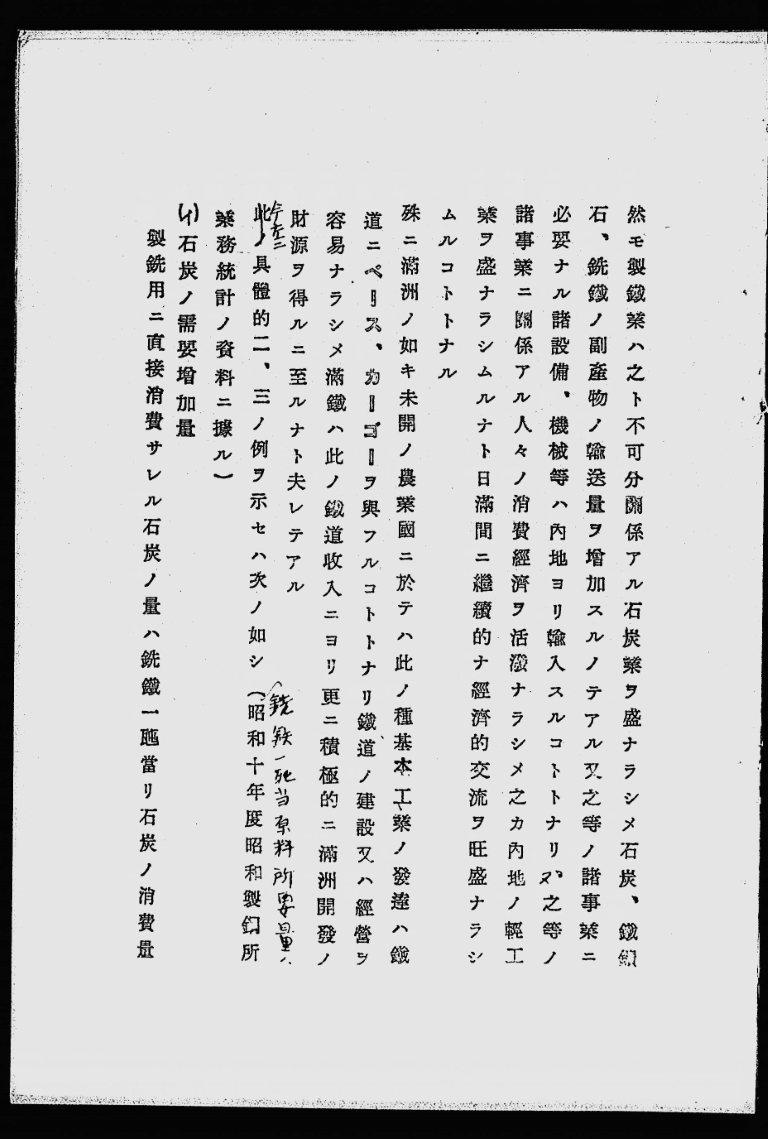 然モ製鐵業ハ之ト不可分關係アル石炭業ヲ盛ナラシメ石炭、鐵鑛
石、銑鐵ノ副產物ノ輸送量ヲ增加スルノテアル又之等ノ諸事業ニ
必要ナル諸設備、機械等ハ內地ヨリ輸入スルコトトナリ又之等ノ
諸事業ニ關係アル人々ノ消費經濟ヲ活潑ナラシメ之カ內地ノ輕工
業ヲ盛ナラシムルナト日滿間ニ繼續的ナ經濟的交流ヲ旺盛ナラシ
ムルコトトナル
殊ニ滿洲ノ如キ未開ノ農業國ニ於テハ此ノ種基本工業ノ發達ハ鐵
道ニベース、カーゴーヲ與フルコトトナリ鐵道ノ建設又ハ經營ヲ
容易ナラシメ滿鐵ハ此ノ鐵道收入ニヨリ更ニ積極的ニ滿洲開發ノ
財源ヲ得ルニ至ルナト夫レテアル
今左ニ
此ノ具體的二、三ノ例ヲ示セハ次ノ如シ(昭和十年度昭和製鋼所
(銑鉄一瓲当原料所要量ハ
業務統計ノ資料ニ據ル)
(イ)石炭ノ需要增加量
製銑用ニ直接消費サレル石炭ノ量ハ銑鐵一瓲當リ石炭ノ消費量